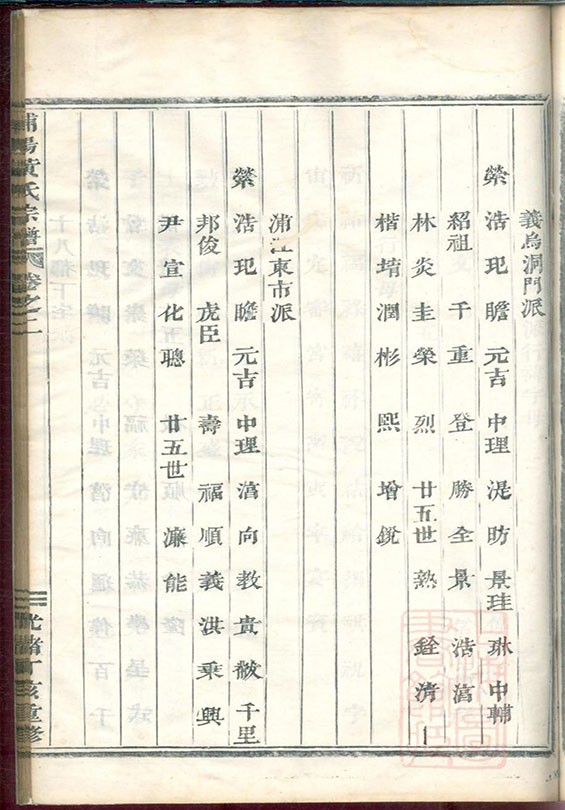 義烏洞門派
縈 浩 玘 瞻 元吉 中理 湜 昉 景珪 琳 中輔
紹祖 千 重 登 勝全 景 浩 滈
林 炎 圭 榮 烈 廿五世 熱 銓 濟
楷 堉 潤 彬 熙 增 銳
浦江東市派
縈 浩 玘 瞻 元吉 中理 滈 向 教 貴 敝 千里
邦俊 虎臣 壽 福 順 義 洪 乘 興
尹 宣 化 聰 廿五世 濂 能
浦陽黃氏宗譜 卷之二
光緒丁亥重修